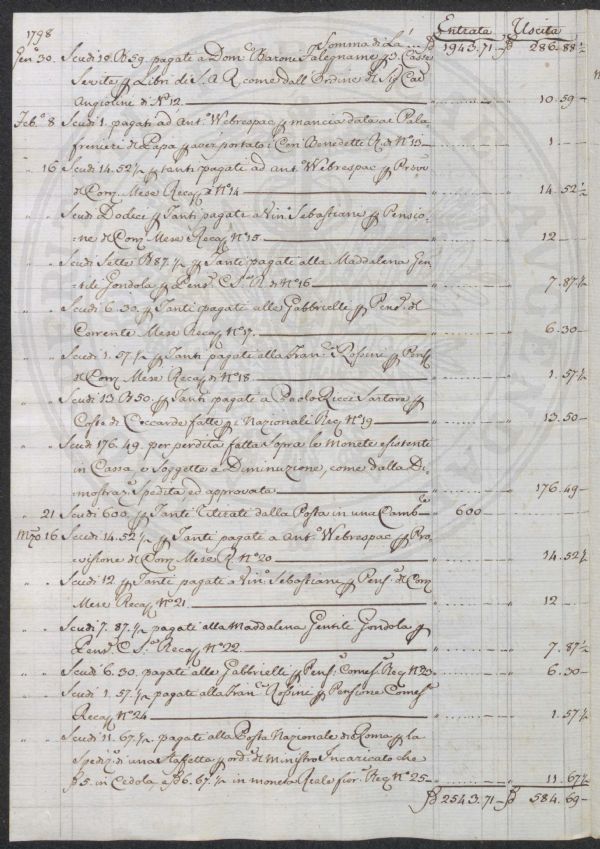 1798 Entrata Uscita
Somma di Là ... 1943.71 — 286.88½
Gen.º 30. Scudi 10. B 59. pagate a Dom.º Baroni Falegname 3 Casse
Servite Libri di S. A. R. come dall'Ordine di Sig. Cav.
Angiolini di Nº 12 — 10.59 —
Feb.º 8 Scudi 1. pagati ad Ant.º Webrespac mancia data ai Pala
frenieri di Papa aver portato i Ceri Benedetti R. di Nº 13 — 1
" 16 Scudi 14.52½ tanti pagati ad Ant.º Webrespac Provv.
di Corr. Mese Recap. Nº 14 — 14.52½
" " Scudi Dodici Tanti pagati a Vin.º Sebastiani Pensio-
ne di Corr. Mese Recap. Nº 15 — 12
" " Scudi Sette B 87.½ Tanti pagati alla Maddalena Gen
tile Gondola Pens.e C. R. di Nº 16 — 7.87½
" " Scudi 6.30. Tanti pagati alle Gabbrielli Pens.e del
Corrente Mese Recap. Nº 17. — 6.30 —
" " Scudi 1.57.½ Tanti pagati alla Fran.ca Rossini Pens.
di Corr. Mese Recap. di Nº 18 — 1.57½
" " Scudi 13 B 50. Tanti pagati a Paolo Ricci Sartore
Costo di Coccarde fatte Nazionali Req. Nº 19 — 13.50 —
" " Scudi 176.49. per perdita fatta Sopra le Monete esistente
in Cassa, e Soggette a Diminuzione, come dalla Di-
mostraz.e Spedita ed approvata — 176.49 —
" 21 Scudi 600. Tanti Ritirati dalla Posta in una Camb.le — 600
Mzo 16 Scudi 14.52½ Tanti pagati a Ant.º Webrespac Pro
visione di Corr. Mese R. Nº 20 — 14.52½
" " Scudi 12 Tanti pagati a Vin.º Sebastiani Pens.e di Corr.
Mese Recap. Nº 21 — 12
" " Scudi 7.87.½ pagati alla Maddalena Gentile Gondola
Pens.e C. Recap. Nº 22. — 7.87½
" " Scudi 6.30. pagati alle Gabbrielli Pens.e Req. Nº 23 — 6.30 —
" " Scudi 1.57½ pagate alla Fran.ca Rossini Pensione
Recap. Nº 24 — 1.57½
" " Scudi 11.67.½ pagati alla Posta Nazionale di Roma la
Spediz.e di una Staffetta ord.e di Ministro Incaricato che
5. in Cedola, e 6.67.½ in moneta Reale Req. Nº 25 — 11.67½
2543.71 — 584.69 —